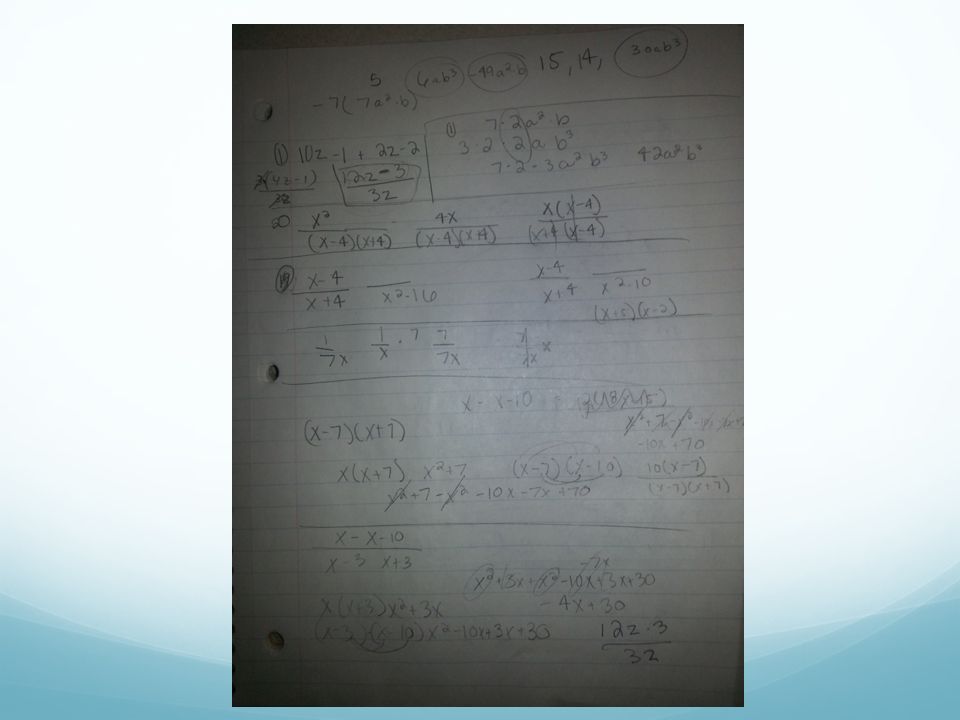 5 6ab³ -49a²·b 15, 14, 30ab³
-7(7a²·b)
① 10z -1 + 2z-2
3(4z-1) / 3z
12z-3 / 3z
① 7·2a²·b
3·2·2a b³
7·2·3a²b³ 42a²b³
20 x² / (x-4)(x+4) - 4x / (x-4)(x+4) x(x-4) / (x+4)(x-4)
19 x-4 / x+4 x²-16 x-4 / x+4 x²-10
(x+5)(x-2)
1 / 7x 1 / x · 7 7 / 7x x
x - x-10
(x-7)(x+7)
-10x+70
x(x+7) x²+7 (x-7)(x-10) 10(x-7) / (x-7)(x+7)
x²+7-x²-10x-7x+70
x - x-10
x-3 x+3
-7x
x²+3x+x²-10x+3x+30
x(x+3) x²+3x -4x+30
(x-3)(x-10) x²-10x+3x+30 12z·3 / 3z